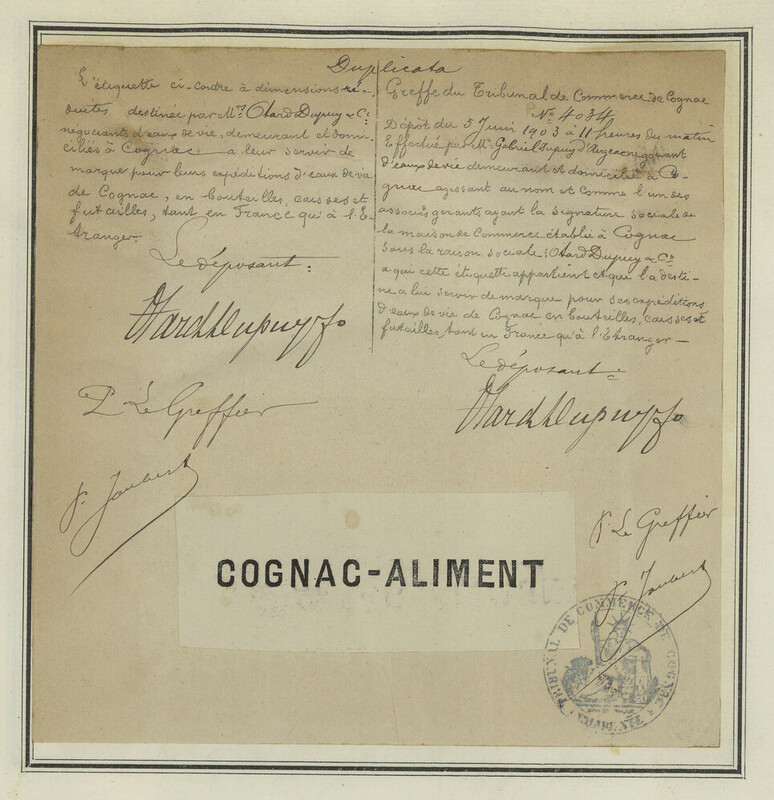 Duplicata
L'étiquette ci-contre à dimensions ré-
duites destinée par Mrs Otard Dupuy & Co
négociants d'eaux de vie, demeurant et domi-
ciliés à Cognac a leur servir de
marque pour leurs expéditions d'eaux de vie
de Cognac, en bouteilles, caisses et
futailles, tant en France qu'à l'E-
tranger.
Le déposant:
Otard Dupuy & Co
Pr Le Greffier
P. Joubert
Greffe du Tribunal de Commerce de Cognac
No 4034
Dépôt du 5 Juin 1903 à 11 heures du matin
Effectué par Mr Gabriel Dupuy d'Angeac négociant
d'eaux de vie demeurant et domicilié à Co-
gnac agissant au nom et comme l'un des
associés gérants ayant la signature sociale de
la maison de Commerce établie à Cognac
sous la raison sociale: Otard Dupuy & Co
a qui cette étiquette appartient et qui l'a desti-
né a lui servir de marque pour ses expéditions
d'eaux de vie de Cognac en bouteilles, caisses et
futailles, tant en France qu'à l'Etranger —
Le déposant:
Otard Dupuy & Co
P. Le Greffier
P. Joubert
COGNAC-ALIMENT
TRIBUNAL DE COMMERCE DE COGNAC
(CHARENTE)